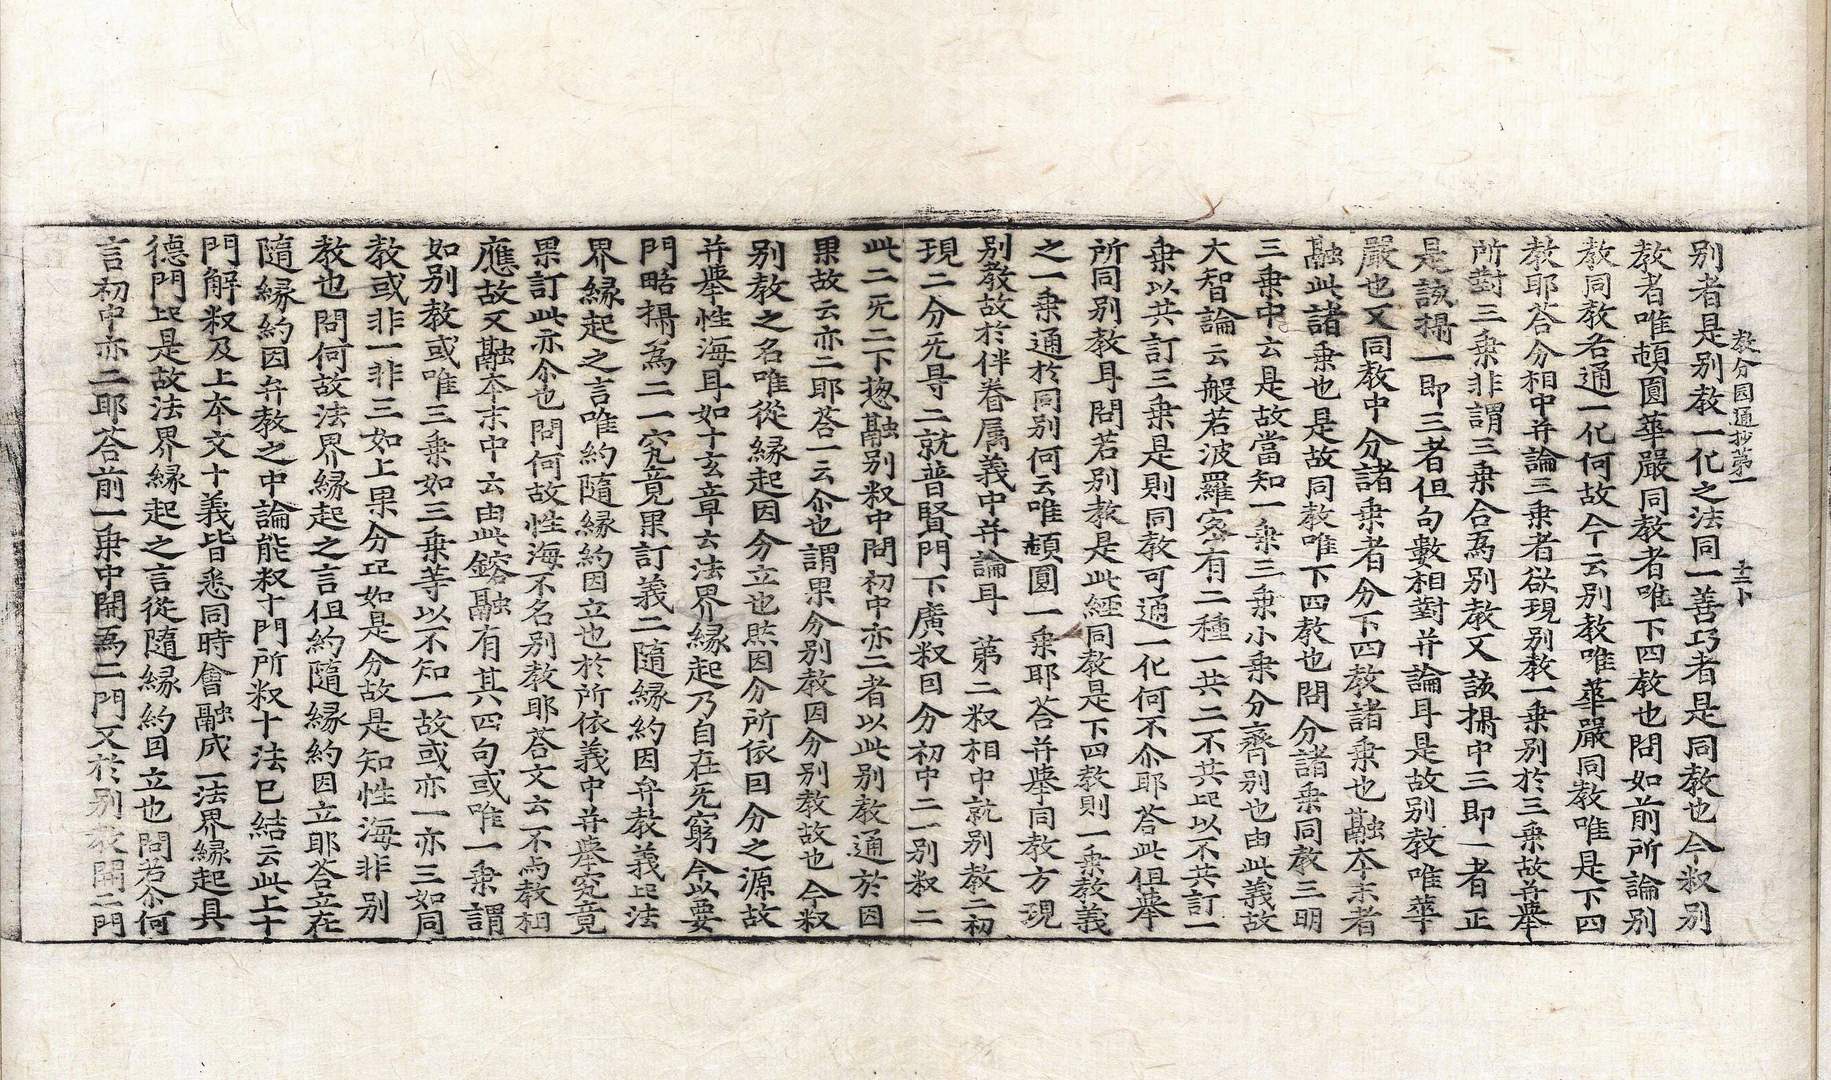 教分圓通抄第一 十二下
別者是別教一化之法同一善巧者是同教也今釈別
教者唯頓圓華嚴同教者唯下四教也問如前所論別
教同教各通一化何故今云別教唯華嚴同教唯是下四
教耶荅分相中并論三乗者欲現別教一乗別於三乗故并舉
所對三乗非謂三乗合爲別教又該攝中三即一者正
是該攝一即三者但句數相對并論耳是故別教唯華
嚴也又同教中分諸乗者分下四教諸乗也融本末者
融此諸乗也是故同教唯下四教也問分諸乗同教三明
三乗中云是故當知一乗三乗小乗分齊別也由此義故
大智論云般若波羅宻有二種一共二不共㱏以不共訂一
乗以共訂三乗是則同教可通一化何不尒耶荅此但舉
所同別教耳問若別教是此經同教是下四教則一乗教義
之一乗通於同別何云唯頓圓一乗耶荅并舉同教方現
別教故於伴眷属義中并論耳 第二釈相中就別教二初
現二分先㝵二就普賢門下廣釈因分初中二一別釈二
此二无二下惣融別釈中問初中亦二者以此別教通於因
果故云亦二耶荅一云尒也謂果分別教因分別教故也今釈
別教之名唯從縁起因分立也㷊因分所依因分之源故
并舉性海耳如十玄章云法界縁起乃自在无窮今以要
門略攝爲二一究竟果訂義二隨縁約因弁教義㱏法
界縁起之言唯約隨縁約因立也於所依義中并舉究竟
果訂此亦尒也問何故性海不名別教耶荅文云不与教相
應故又融本末中云由此鎔融有其四句或唯一乗謂
如別教或唯三乗如三乗等以不知一故或亦一亦三如同
教或非一非三如上果分㱏如是分故是知性海非別
教也問何故法界縁起之言但約隨縁約因立耶荅立在
隨縁約因弁教之中論能釈十門所釈十法已結云此上十
門解釈及上本文十義皆悉同時會融成一法界縁起具
德門㱏是故法界縁起之言從隨縁約因立也問若尒何
言初中亦二耶荅前一乗中開爲二門又於別教開二門